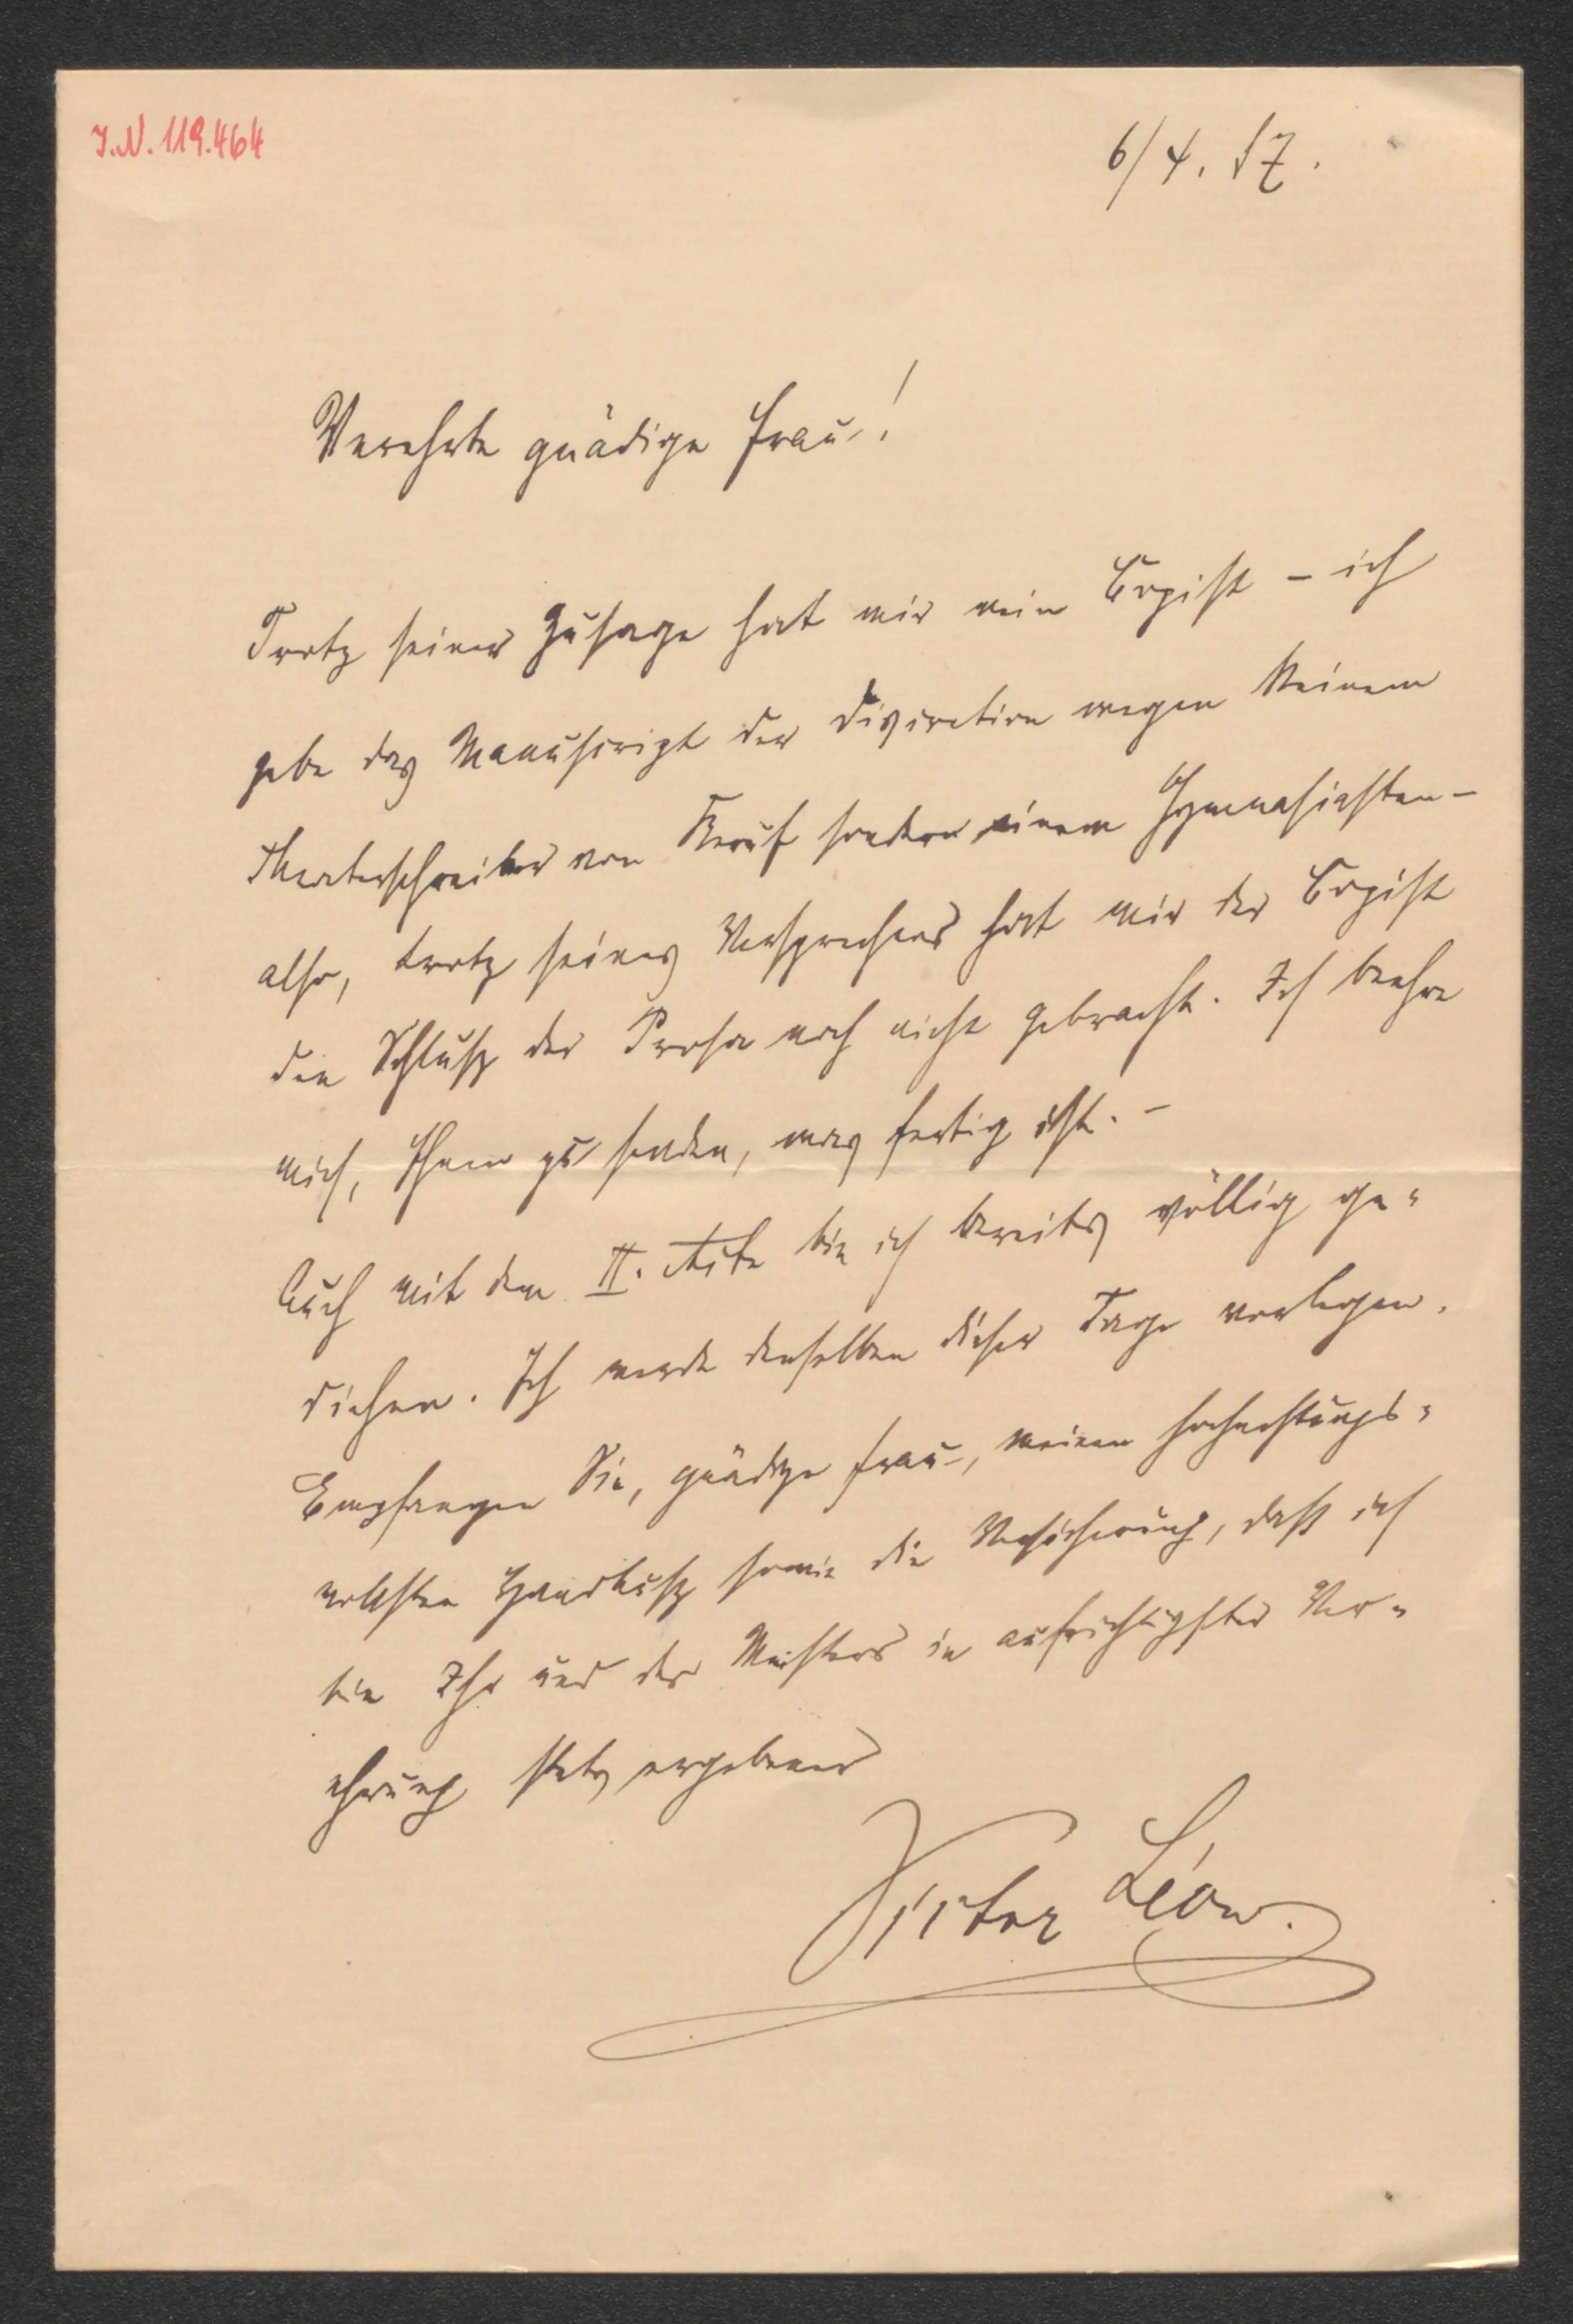 I.N. 119.464
6/4. 87.
Verehrte gnädige Frau!
Trotz seiner Zusage hat mir mein Copist – ich
gebe das Manuscript der Discretion wegen keinem
Theaterschreiber von Beruf sondern einem Gymnasiasten –
also, trotz seines Versprechens hat mir der Copist
den Schluß der Prosa noch nicht gebracht. Ich beehre
mich, Ihnen zu senden, was fertig ist. –
Auch mit dem II. Akte bin ich bereits völlig ge-
diehen. Ich werde denselben dieser Tage vorlegen.
Empfangen Sie, gnädige Frau, meinen hochachtungs-
vollsten Handkuß sowie die Versicherung, daß ich
bin Ihr und des Meisters in aufrichtigster Ver-
ehrung stets ergebener
Victor Léon.